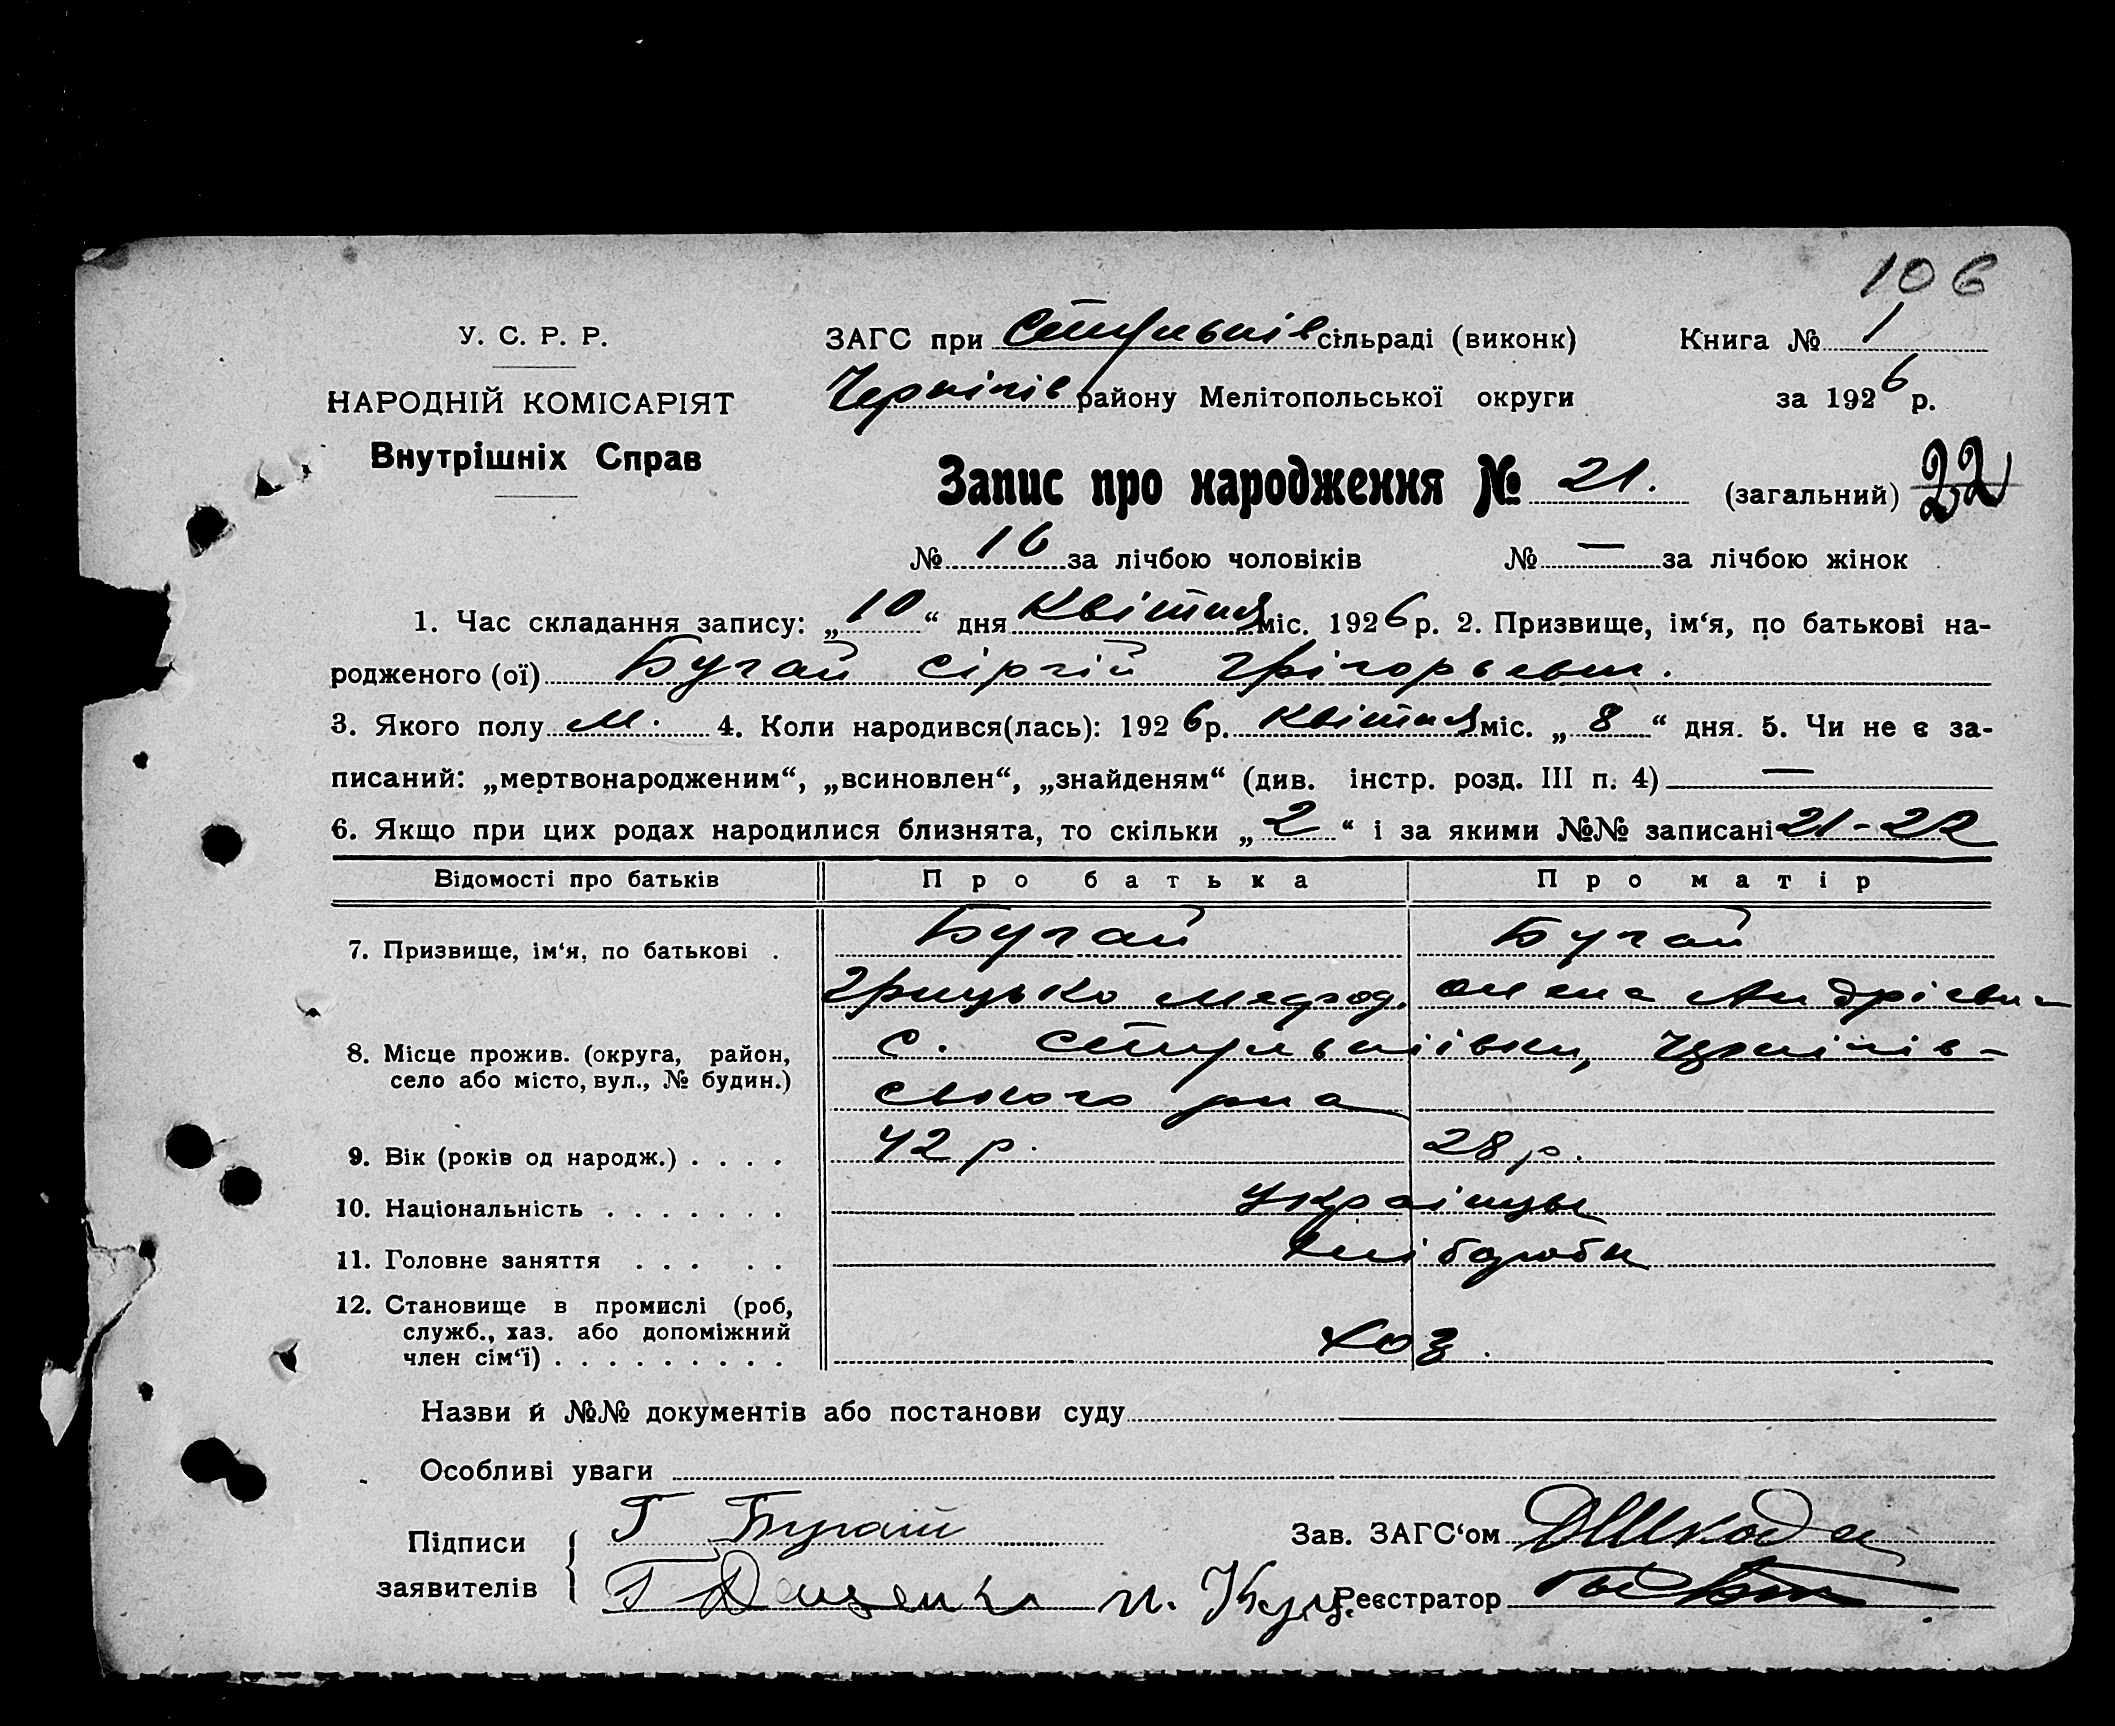 106
У. С. Р. Р.
НАРОДНІЙ КОМІСАРІЯТ
Внутрішніх Справ
ЗАГС при сільраді (виконк)
Книга № 1
Чернігів району Мелітопольської округи
за 1926 р.
Запис про народження № 21. (загальний) 22
№ 16 за лічбою чоловіків № — за лічбою жінок
1. Час складання запису: „10“ дня Квітня міс. 1926 р. 2. Призвище, ім‘я, по батькові на-
родженого (ої) Бугай Сіргій Грігорьевич.
3. Якого полу м. 4. Коли народився(лась): 1926 р. Квітня міс. „8“ дня. 5. Чи не є за-
писаний: „мертвонародженим“, „всиновлен“, „знайденям“ (див. інстр. розд. III п. 4) —
6. Якщо при цих родах народилися близнята, то скільки „2“ і за якими №№ записані 21-22
Відомості про батьків Про батька Про матір
7. Призвище, ім‘я, по батькові . Бугай Бугай
Грицько Олена Андрієвна
8. Місце прожив. (округа, район, село або місто, вул., № будин.) с. Чернігів-
ського р-на
9. Вік (років од народж.) . . . . 42 р. 28 р.
10. Національність . . . . . . . Українцы
11. Головне заняття . . . . . Хліборобы
12. Становище в промислі (роб, служб., хаз. або допоміжний член сім‘ї) . . . . . . . . . хоз.
Назви й №№ документів або постанови суду
Особливі уваги
Підписи заявителів
Г Бугай
Г Даценко
Зав. ЗАГС‘ом ДШкода
Реєстратор